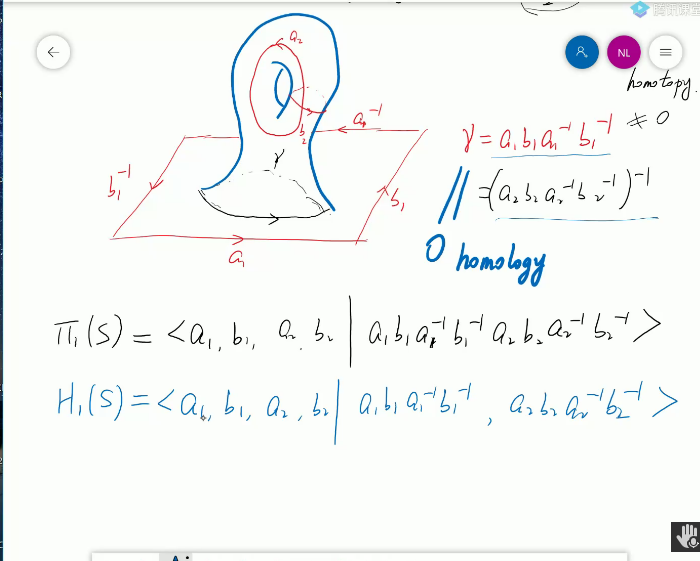 腾讯课堂
NL
homotopy.
a₂
a₁⁻¹
b₂
γ
b₁⁻¹
b₁
a₁
γ = a₁ b₁ a₁⁻¹ b₁⁻¹ ≠ 0
=(a₂ b₂ a₂⁻¹ b₂⁻¹)⁻¹
|| 0 homology
π₁(S) = <a₁, b₁, a₂, b₂ | a₁ b₁ a₁⁻¹ b₁⁻¹ a₂ b₂ a₂⁻¹ b₂⁻¹>
H₁(S) = <a₁, b₁, a₂, b₂ | a₁ b₁ a₁⁻¹ b₁⁻¹, a₂ b₂ a₂⁻¹ b₂⁻¹>